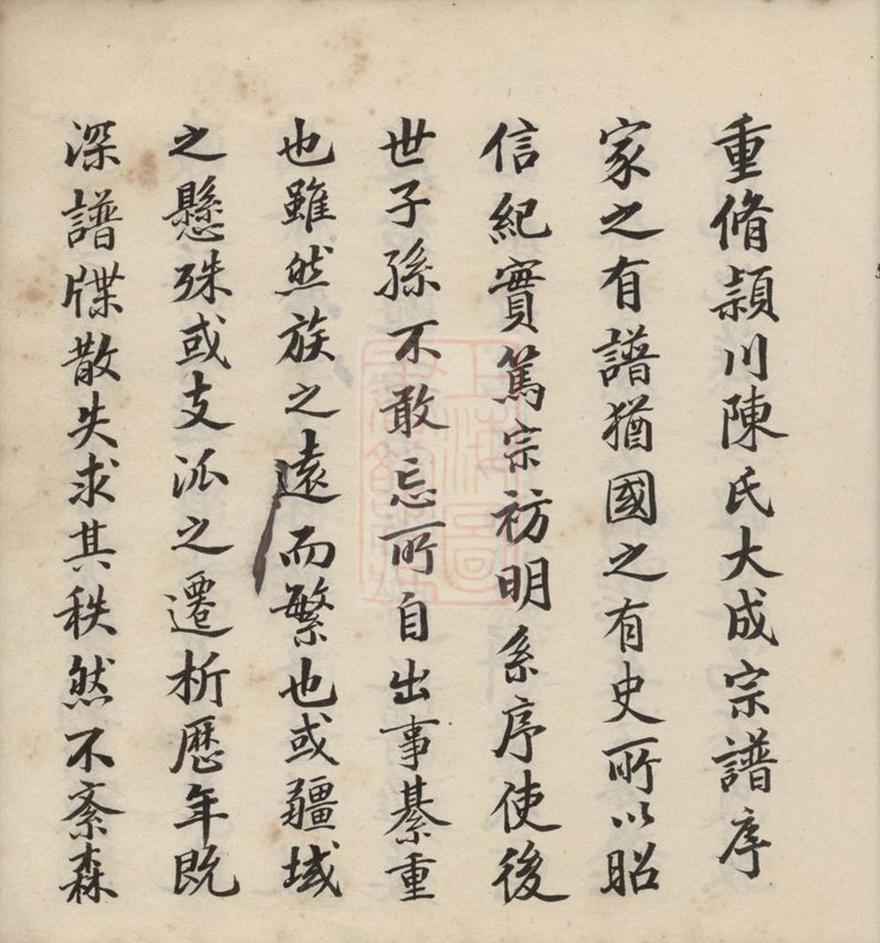 重脩頴川陳氏大成宗譜序
家之有譜猶國之有史所以昭
信紀實篤宗祊明系序使後
世子孫不敢忘所自出事綦重
也雖然族之遠而繁也或疆域
之懸殊或支派之遷析歷年既
深譜牒散失求其秩然不紊森
上海圖書館藏